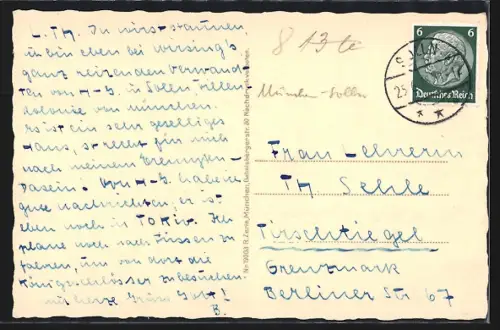 L. TH. Du wirst staunen,
ich bin eben bei Wirsing's
ganz reizenden Verwand-
ten von H-G. in Solln, Villen
kolonie von München.
Es ist ein sehr geselliges
Haus, so recht für mich
nach meinem Eremiten-
Dasein. Von H-G. habe ich
gute Nachrichten, er ist
eben noch in Tokio. Ich
plane noch nach Füssen zu
fahren, um von dort die
Königsschlösser zu besuchen.
mit herzl. Grüss Gott!
B.
Nr. 19003 R. Zerle, München, Gabelsbergerstr. 30 Nachdruck verboten
8 13 te
München-Solln
6 6
Deutsches Reich
SOLLN
25
Frau Lehrerin
TH Sehle
Tirschtiegel
Grenzmark
Berliner Str 67